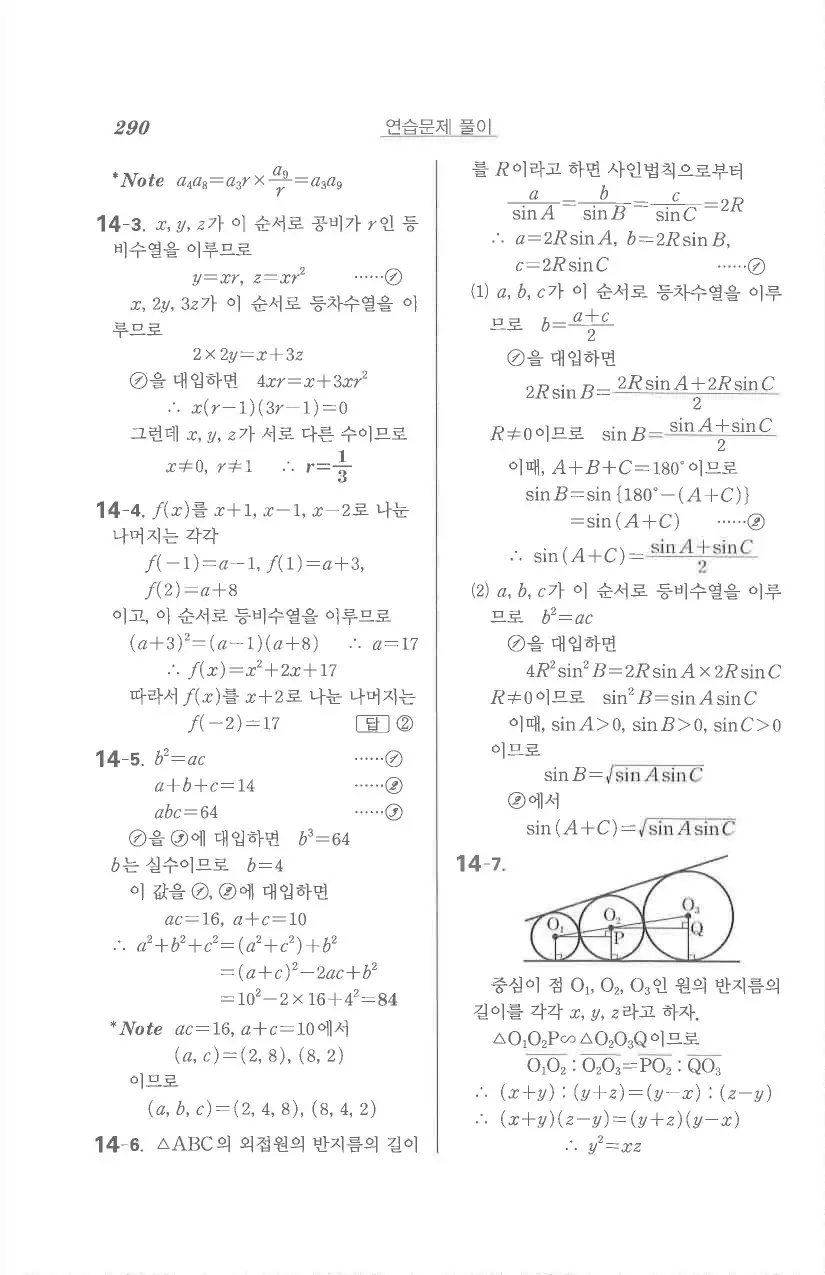 290
연습문제 풀이
*Note a₄a₈=a₃r×a₉/r=a₃a₉
14-3. x, y, z가 이 순서로 공비가 r인 등
비수열을 이루므로
y=xr, z=xr² ……①
x, 2y, 3z가 이 순서로 등차수열을 이
루므로
2×2y=x+3z
①을 대입하면 4xr=x+3xr²
∴ x(r-1)(3r-1)=0
그런데 x, y, z가 서로 다른 수이므로
x≠0, r≠1 ∴ r=1/3
14-4. f(x)를 x+1, x-1, x-2로 나눈
나머지는 각각
f(-1)=a-1, f(1)=a+3,
f(2)=a+8
이고, 이 순서로 등비수열을 이루므로
(a+3)²=(a-1)(a+8) ∴ a=17
∴ f(x)=x²+2x+17
따라서 f(x)를 x+2로 나눈 나머지는
f(-2)=17 답 ②
14-5. b²=ac ……①
a+b+c=14 ……②
abc=64 ……③
①을 ③에 대입하면 b³=64
b는 실수이므로 b=4
이 값을 ①, ②에 대입하면
ac=16, a+c=10
∴ a²+b²+c²=(a²+c²)+b²
=(a+c)²-2ac+b²
=10²-2×16+4²=84
*Note ac=16, a+c=10에서
(a, c)=(2, 8), (8, 2)
이므로
(a, b, c)=(2, 4, 8), (8, 4, 2)
14-6. △ABC의 외접원의 반지름의 길이
를 R이라고 하면 사인법칙으로부터
a/sin A=b/sin B=c/sin C=2R
∴ a=2R sin A, b=2R sin B,
c=2R sin C ……①
(1) a, b, c가 이 순서로 등차수열을 이루
므로 b=(a+c)/2
①을 대입하면
2R sin B=(2R sin A+2R sin C)/2
R≠0이므로 sin B=(sin A+sin C)/2
이때, A+B+C=180°이므로
sin B=sin {180°-(A+C)}
=sin (A+C) ……②
∴ sin (A+C)=(sin A+sin C)/2
(2) a, b, c가 이 순서로 등비수열을 이루
므로 b²=ac
①을 대입하면
4R² sin² B=2R sin A×2R sin C
R≠0이므로 sin² B=sin A sin C
이때, sin A>0, sin B>0, sin C>0
이므로
sin B=√(sin A sin C)
②에서
sin (A+C)=√(sin A sin C)
14-7.
O₁ O₂ O₃ P Q
중심이 점 O₁, O₂, O₃인 원의 반지름의
길이를 각각 x, y, z라고 하자.
△O₁O₂P∽△O₂O₃Q이므로
O̅₁O̅₂ : O̅₂O̅₃=P̅O̅₂ : Q̅O̅₃
∴ (x+y) : (y+z)=(y-x) : (z-y)
∴ (x+y)(z-y)=(y+z)(y-x)
∴ y²=xz